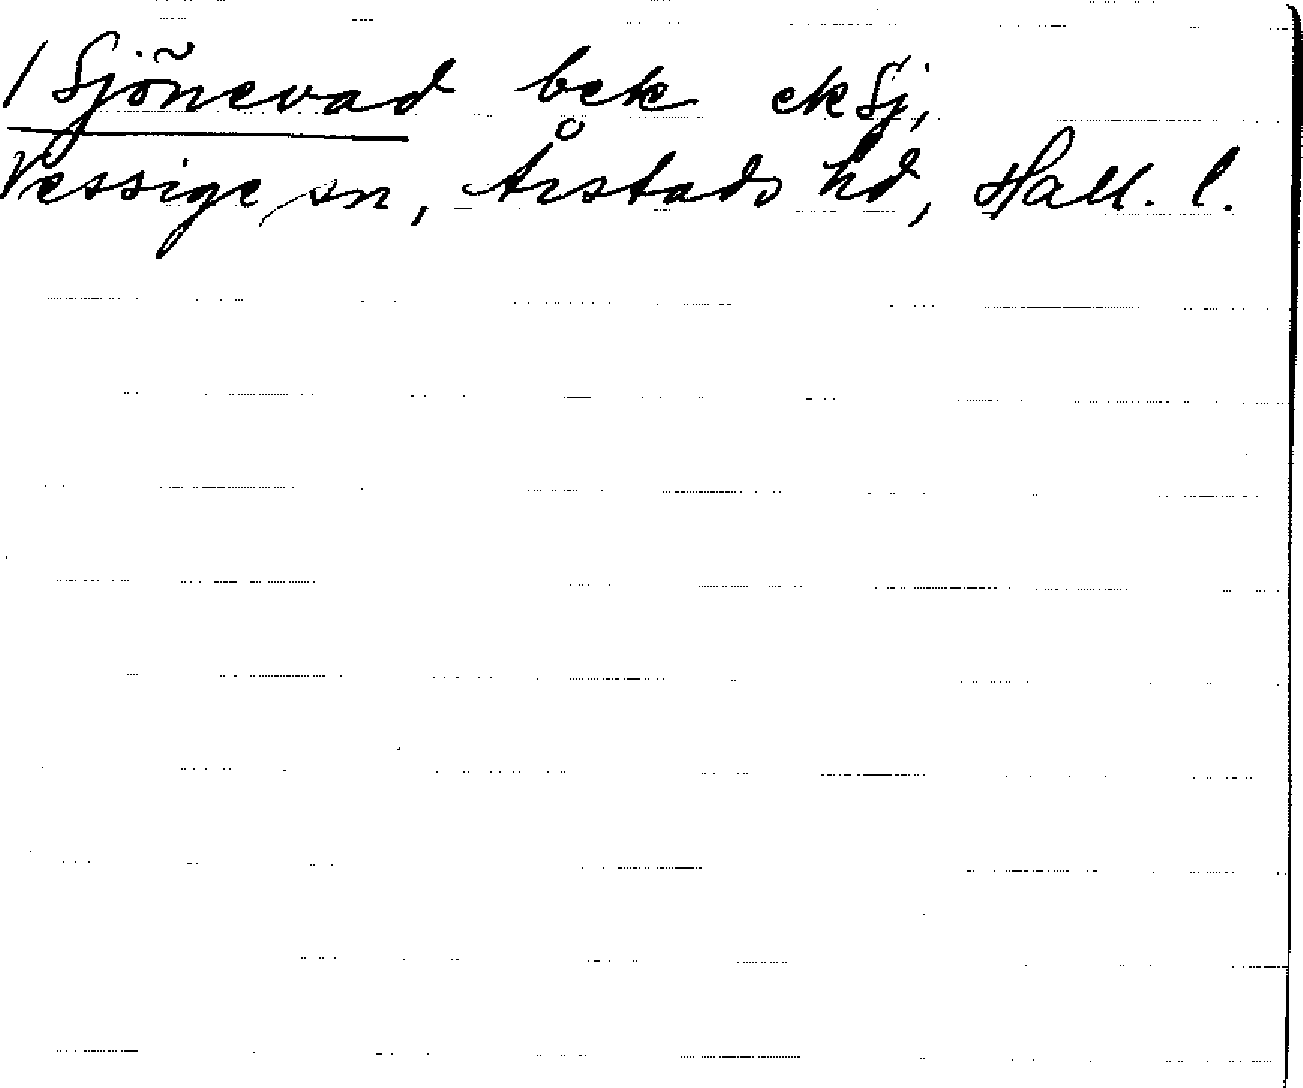 / Sjönevad bek ek Sj,
Vessige sn, Årstads hd, Hall. l.